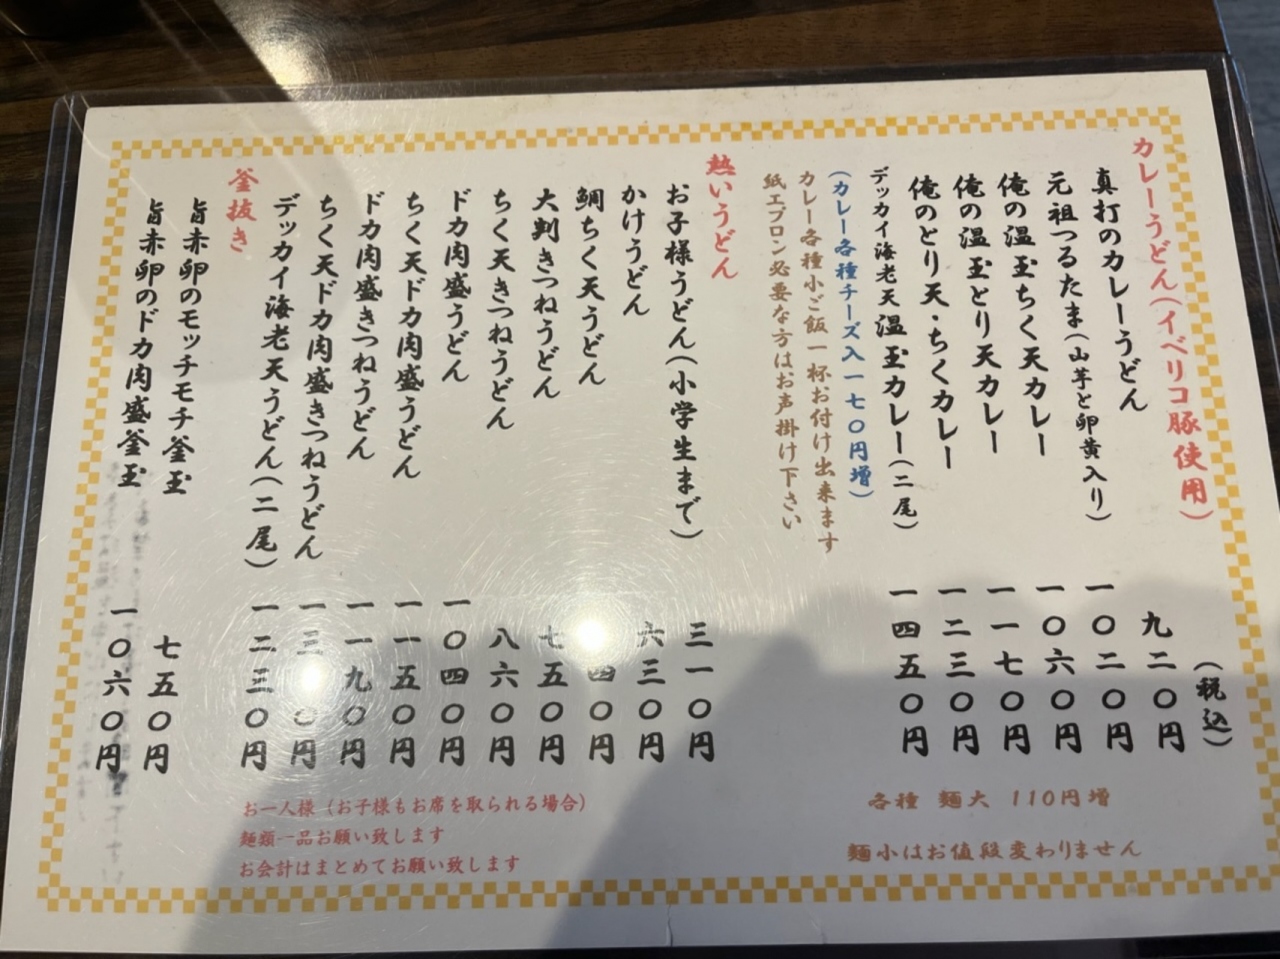 カレーうどん(イベリコ豚使用)
(税込)
真打のカレーうどん 九二〇円
元祖つるたま(山芋と卵黄入り) 一〇二〇円
俺の温玉ちく天カレー 一〇六〇円
俺の温玉とり天カレー 一一七〇円
俺のとり天・ちくカレー 一二三〇円
デッカイ海老天温玉カレー(二尾) 一四五〇円
(カレー各種チーズ入一七〇円増)
カレー各種小ご飯一杯お付け出来ます
紙エプロン必要な方はお声掛け下さい
各種 麺大 110円増
麺小はお値段変わりません
熱いうどん
お子様うどん(小学生まで) 三一〇円
かけうどん 六三〇円
鯛ちく天うどん 四〇円
大判きつねうどん 七五〇円
ちく天きつねうどん 八六〇円
ドカ肉盛うどん 一〇四〇円
ちく天ドカ肉盛うどん 一一五〇円
ドカ肉盛きつねうどん 一一九〇円
ちく天ドカ肉盛きつねうどん 一三 〇円
デッカイ海老天うどん(二尾) 一二三〇円
釜抜き
旨赤卵のモッチモチ釜玉 七五〇円
旨赤卵のドカ肉盛釜玉 一〇六〇円
お一人様(お子様もお席を取られる場合)
麺類一品お願い致します
お会計はまとめてお願い致します